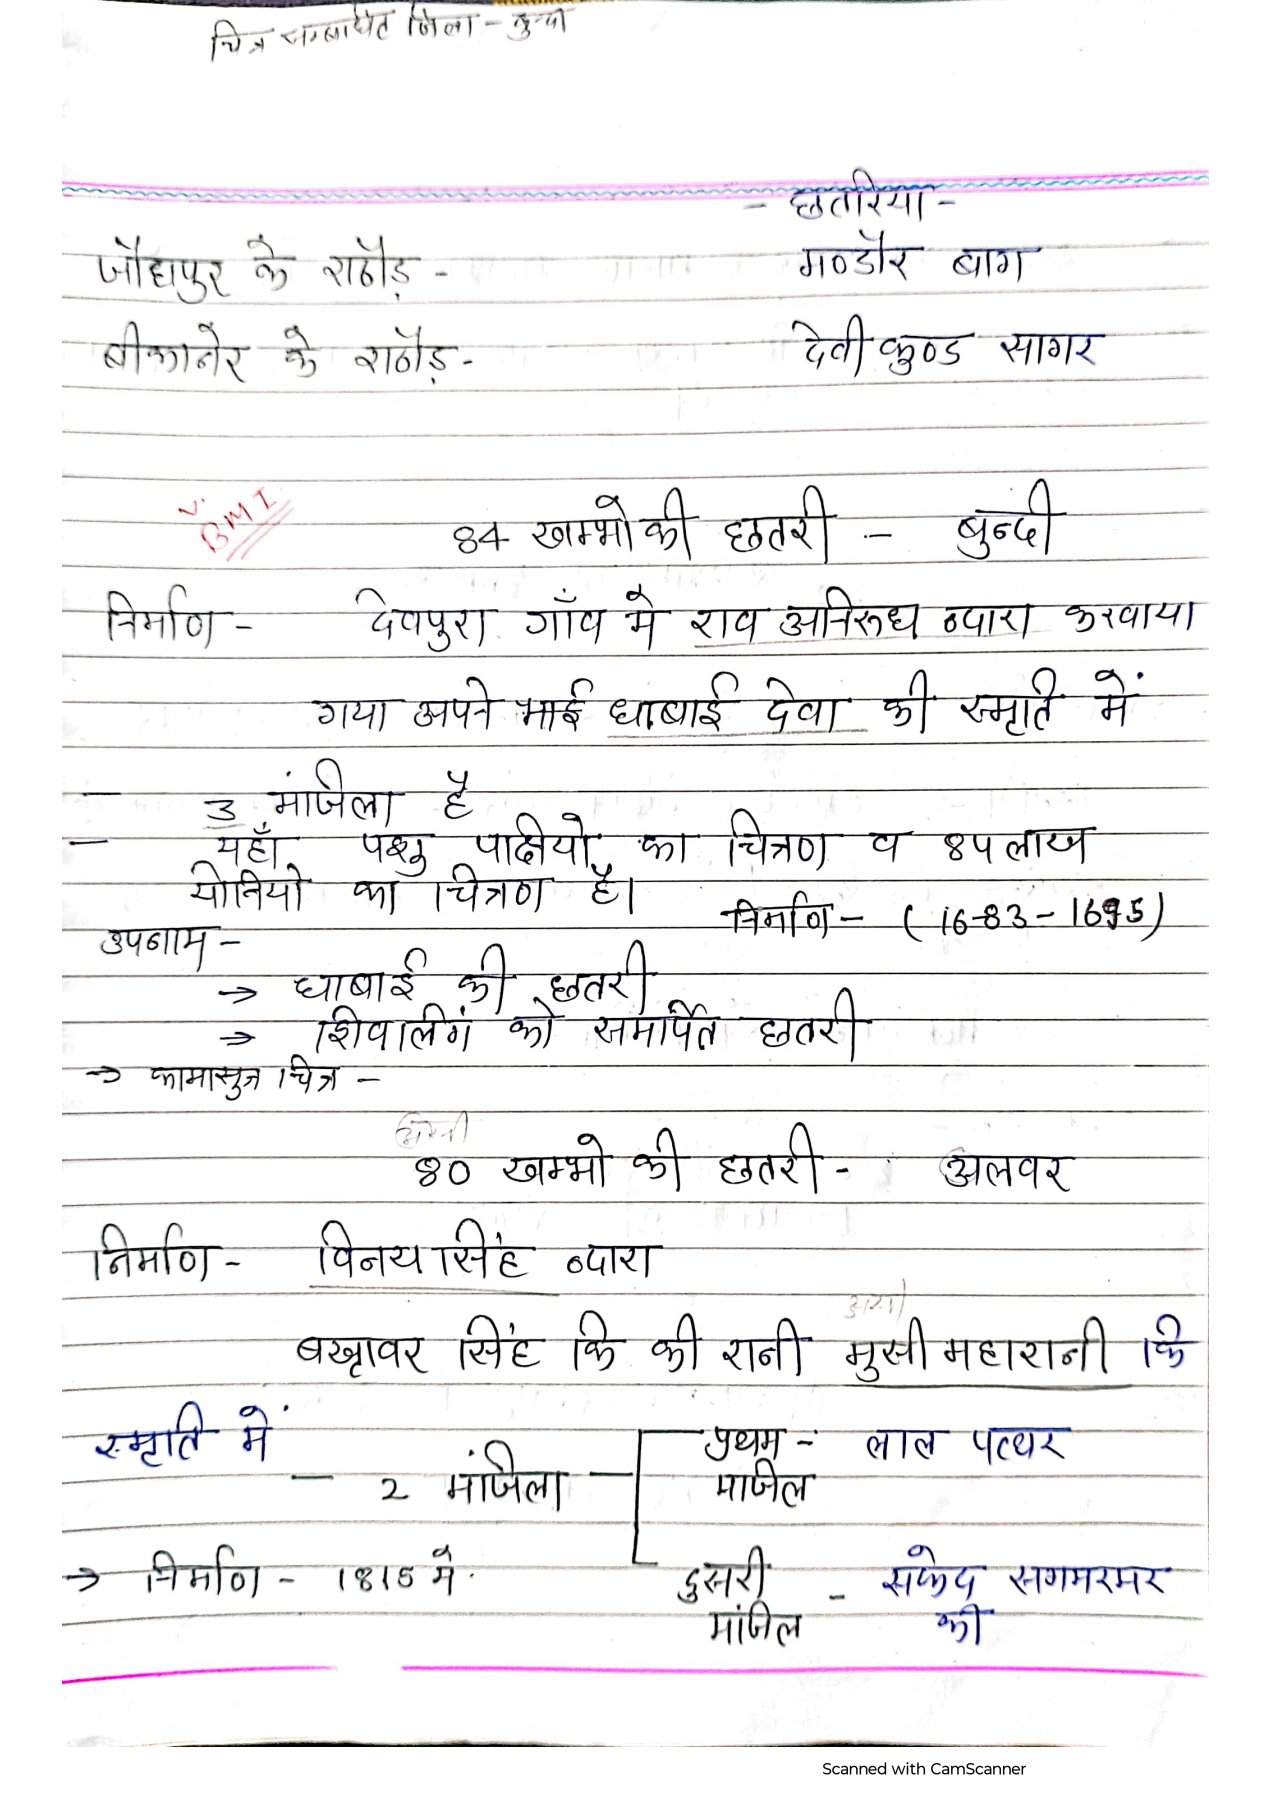 चित्र सम्बाधित जिला - बुन्दी
- छतरिया -
जौधपुर के राठौड़ - मण्डौर बाग
बीकानेर के राठौड़ - देवी कुण्ड सागर
BMI
84 खम्भो की छतरी - बुन्दी
निर्माण - देवपुरा गाँव मे राव अनिरुध व्दारा करवाया
गया अपने भाई धाबाई देवा की स्मृति में
- 3 मंजिला है
- यहाँ पशु पक्षियो का चित्रण व 84 लाख
योनियो का चित्रण है।
निर्माण - (1683 - 1695)
उपनाम -
→ धाबाई की छतरी
→ शिवालिंग को समर्पित छतरी
→ कामासुत्र चित्र -
80 खम्भो की छतरी - अलवर
निर्माण - विनय सिंह व्दारा
बख्तावर सिंह कि की रानी मुसी महारानी कि
स्मृति में
- 2 मंजिला - प्रथम मंजिल - लाल पत्थर
→ निर्माण - 1815 मे. दुसरी मंजिल - सफेद सगमरमर की
Scanned with CamScanner